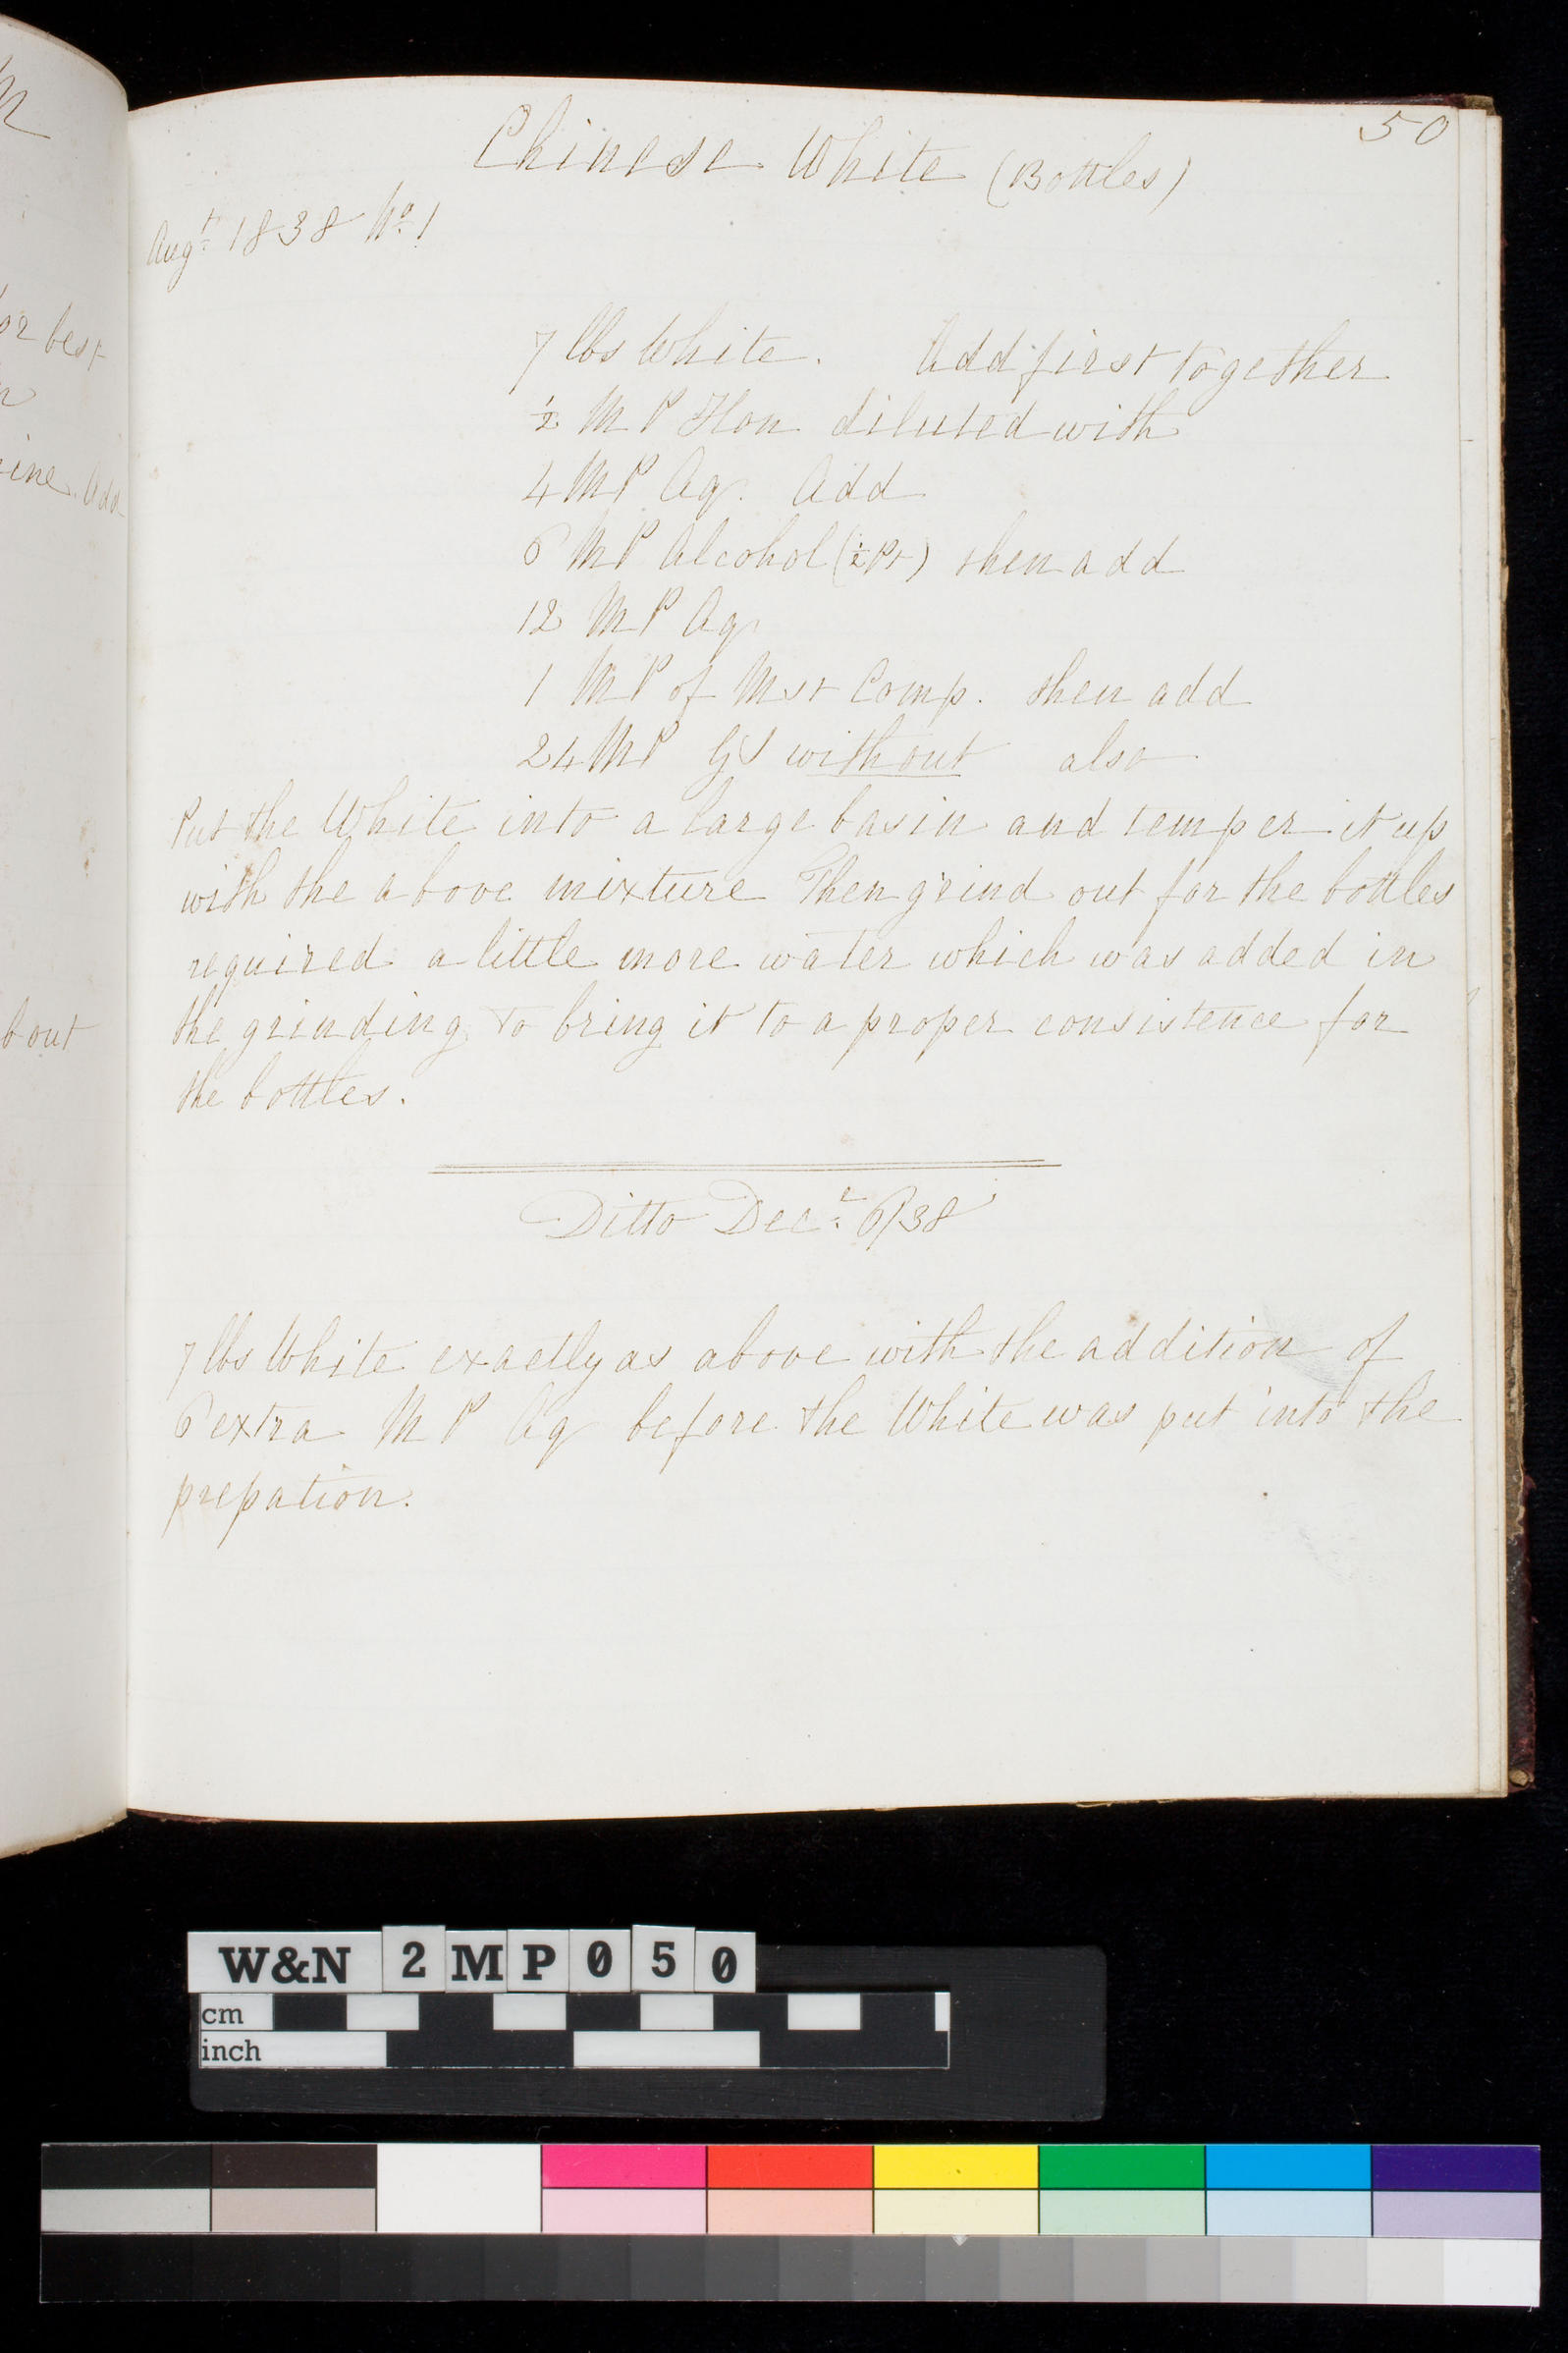 50
Chinese White (Bottles)
Augt 1838 No 1
7 lbs White. Add first together
½ MP Hon diluted with
4 MP Aq. Add
6 MP Alcohol (½ Pt) then add
12 MP Aq
1 MP of Mst Comp. then add
24 MP GS without also
Put the White into a large basin and temper it up
with the above mixture Then grind out for the bottles
required a little more water which was added in
the grinding to bring it to a proper consistence for
the bottles.
Ditto Decr 6/38
7 lbs White exactly as above with the addition of
6 extra MP Aq before the White was put into the
prepation.
or best
ine. Add
bout
W&N 2MP050
cm
inch